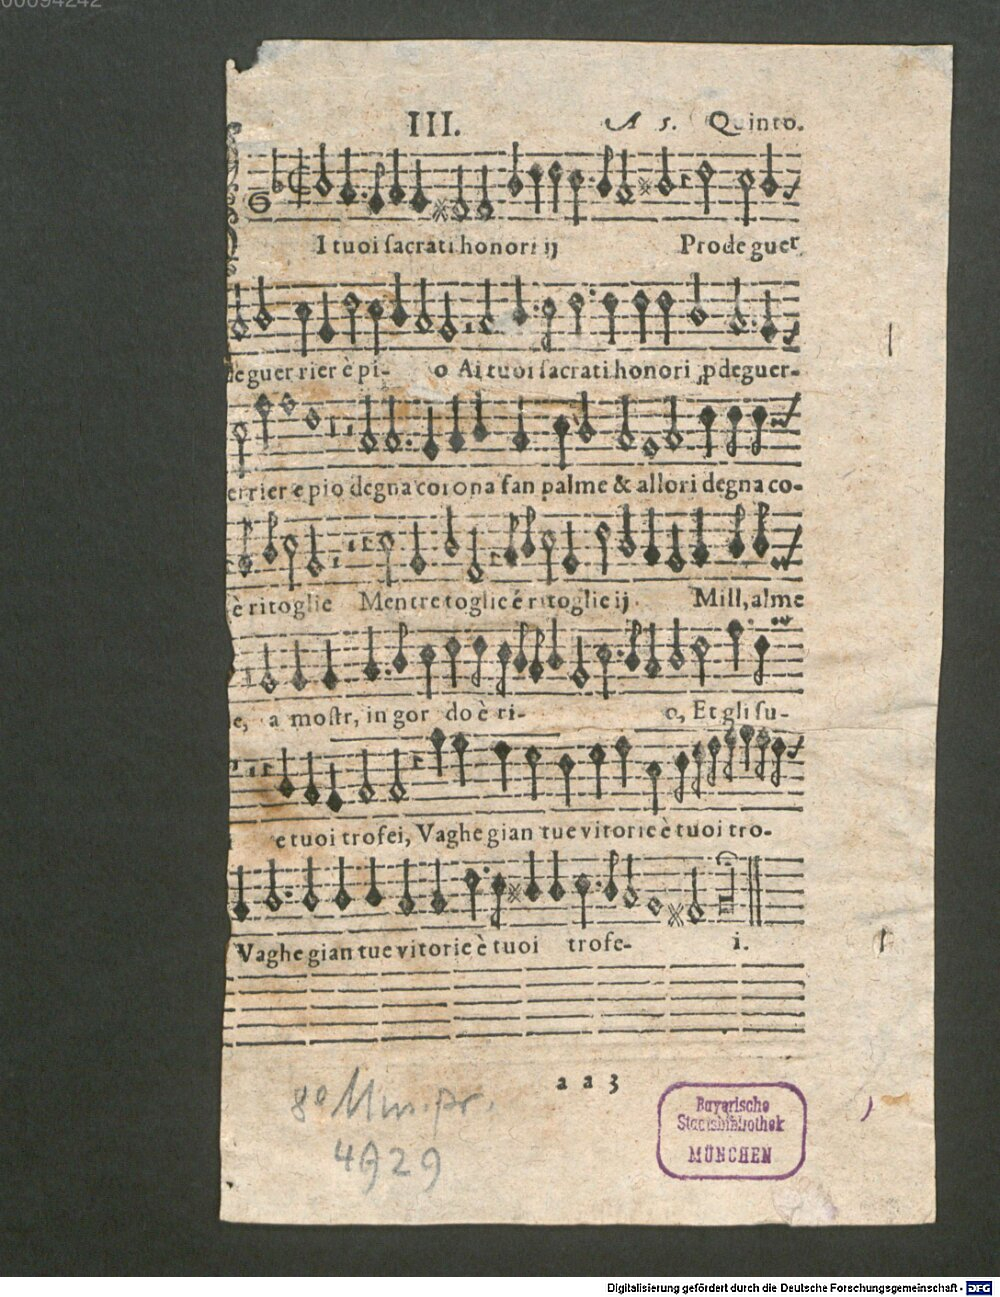 00094242
III. A 5. Quinto.
I tuoi sacrati honori ij Prode guer
de guerrier è pi- o Ai tuoi sacrati honori ꝓdeguer-
errier e pio degna corona fan palme & allori degna co-
è ritoglie Mentre toglie é ritoglie ij. Mill, alme
e, a mostr, in gor do è ri- o, Et gli su-
e tuoi trofei, Vaghe gian tue vitorie è tuoi tro-
Vaghe gian tue vitorie è tuoi trofe- i.
a a 3
8° Mus. pr.
4929
Bayerische
Staatsbibliothek
MÜNCHEN
Digitalisierung gefördert durch die Deutsche Forschungsgemeinschaft - DFG